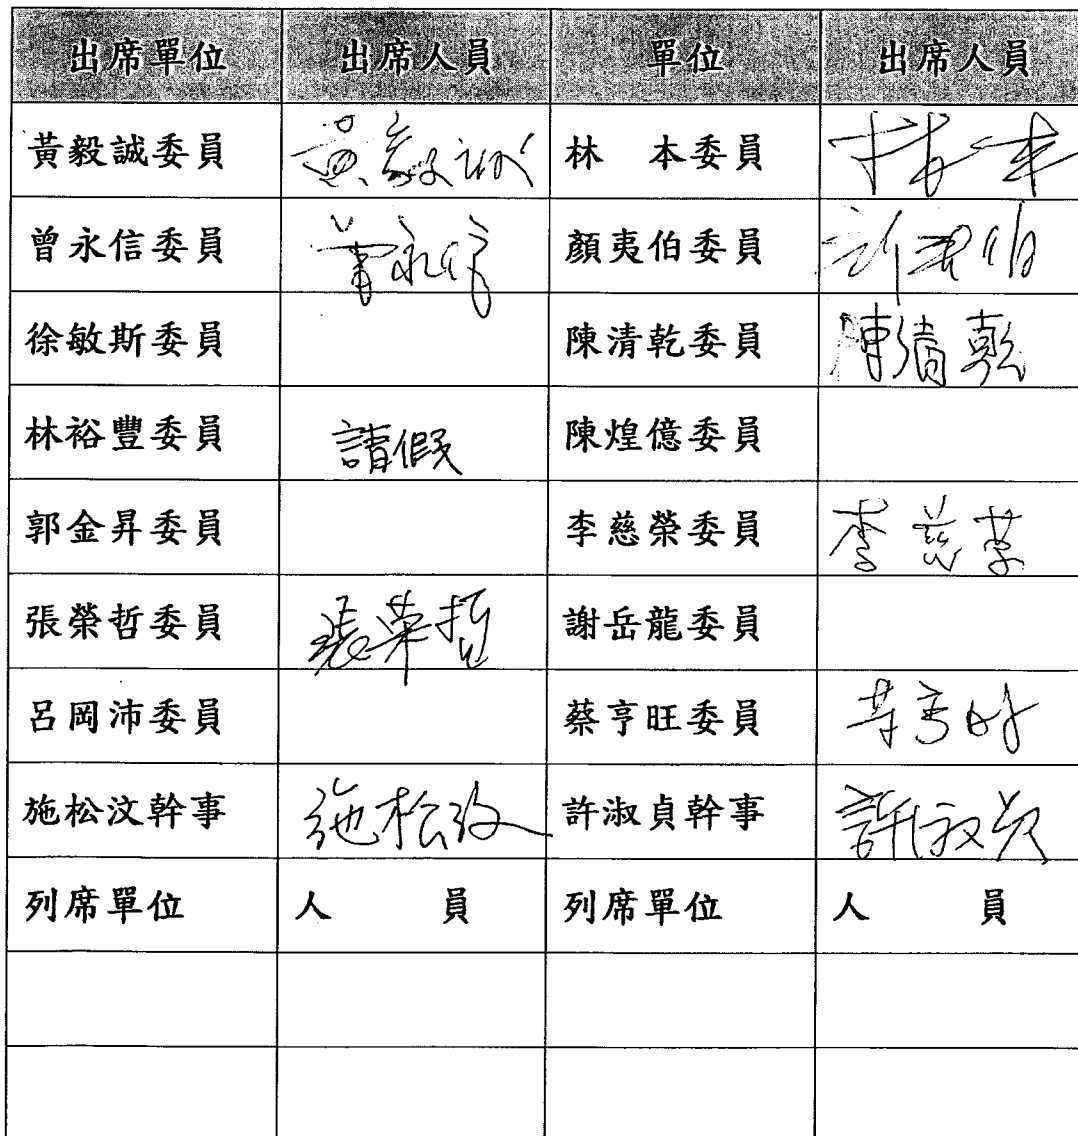 出席單位 出席人員 單位 出席人員
黃毅誠委員 黃毅誠 林 本委員 林本
曾永信委員 曾永信 顏夷伯委員 顏夷伯
徐敏斯委員 陳清乾委員 陳清乾
林裕豐委員 請假 陳煌億委員
郭金昇委員 李慈榮委員 李慈榮
張榮哲委員 張榮哲 謝岳龍委員
呂岡沛委員 蔡亨旺委員 蔡亨旺
施松汶幹事 施松汶 許淑貞幹事 許淑貞
列席單位 人 員 列席單位 人 員